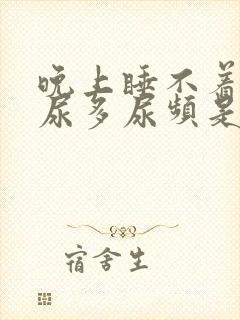 晚上睡不着
尿多尿频是
宿舍生